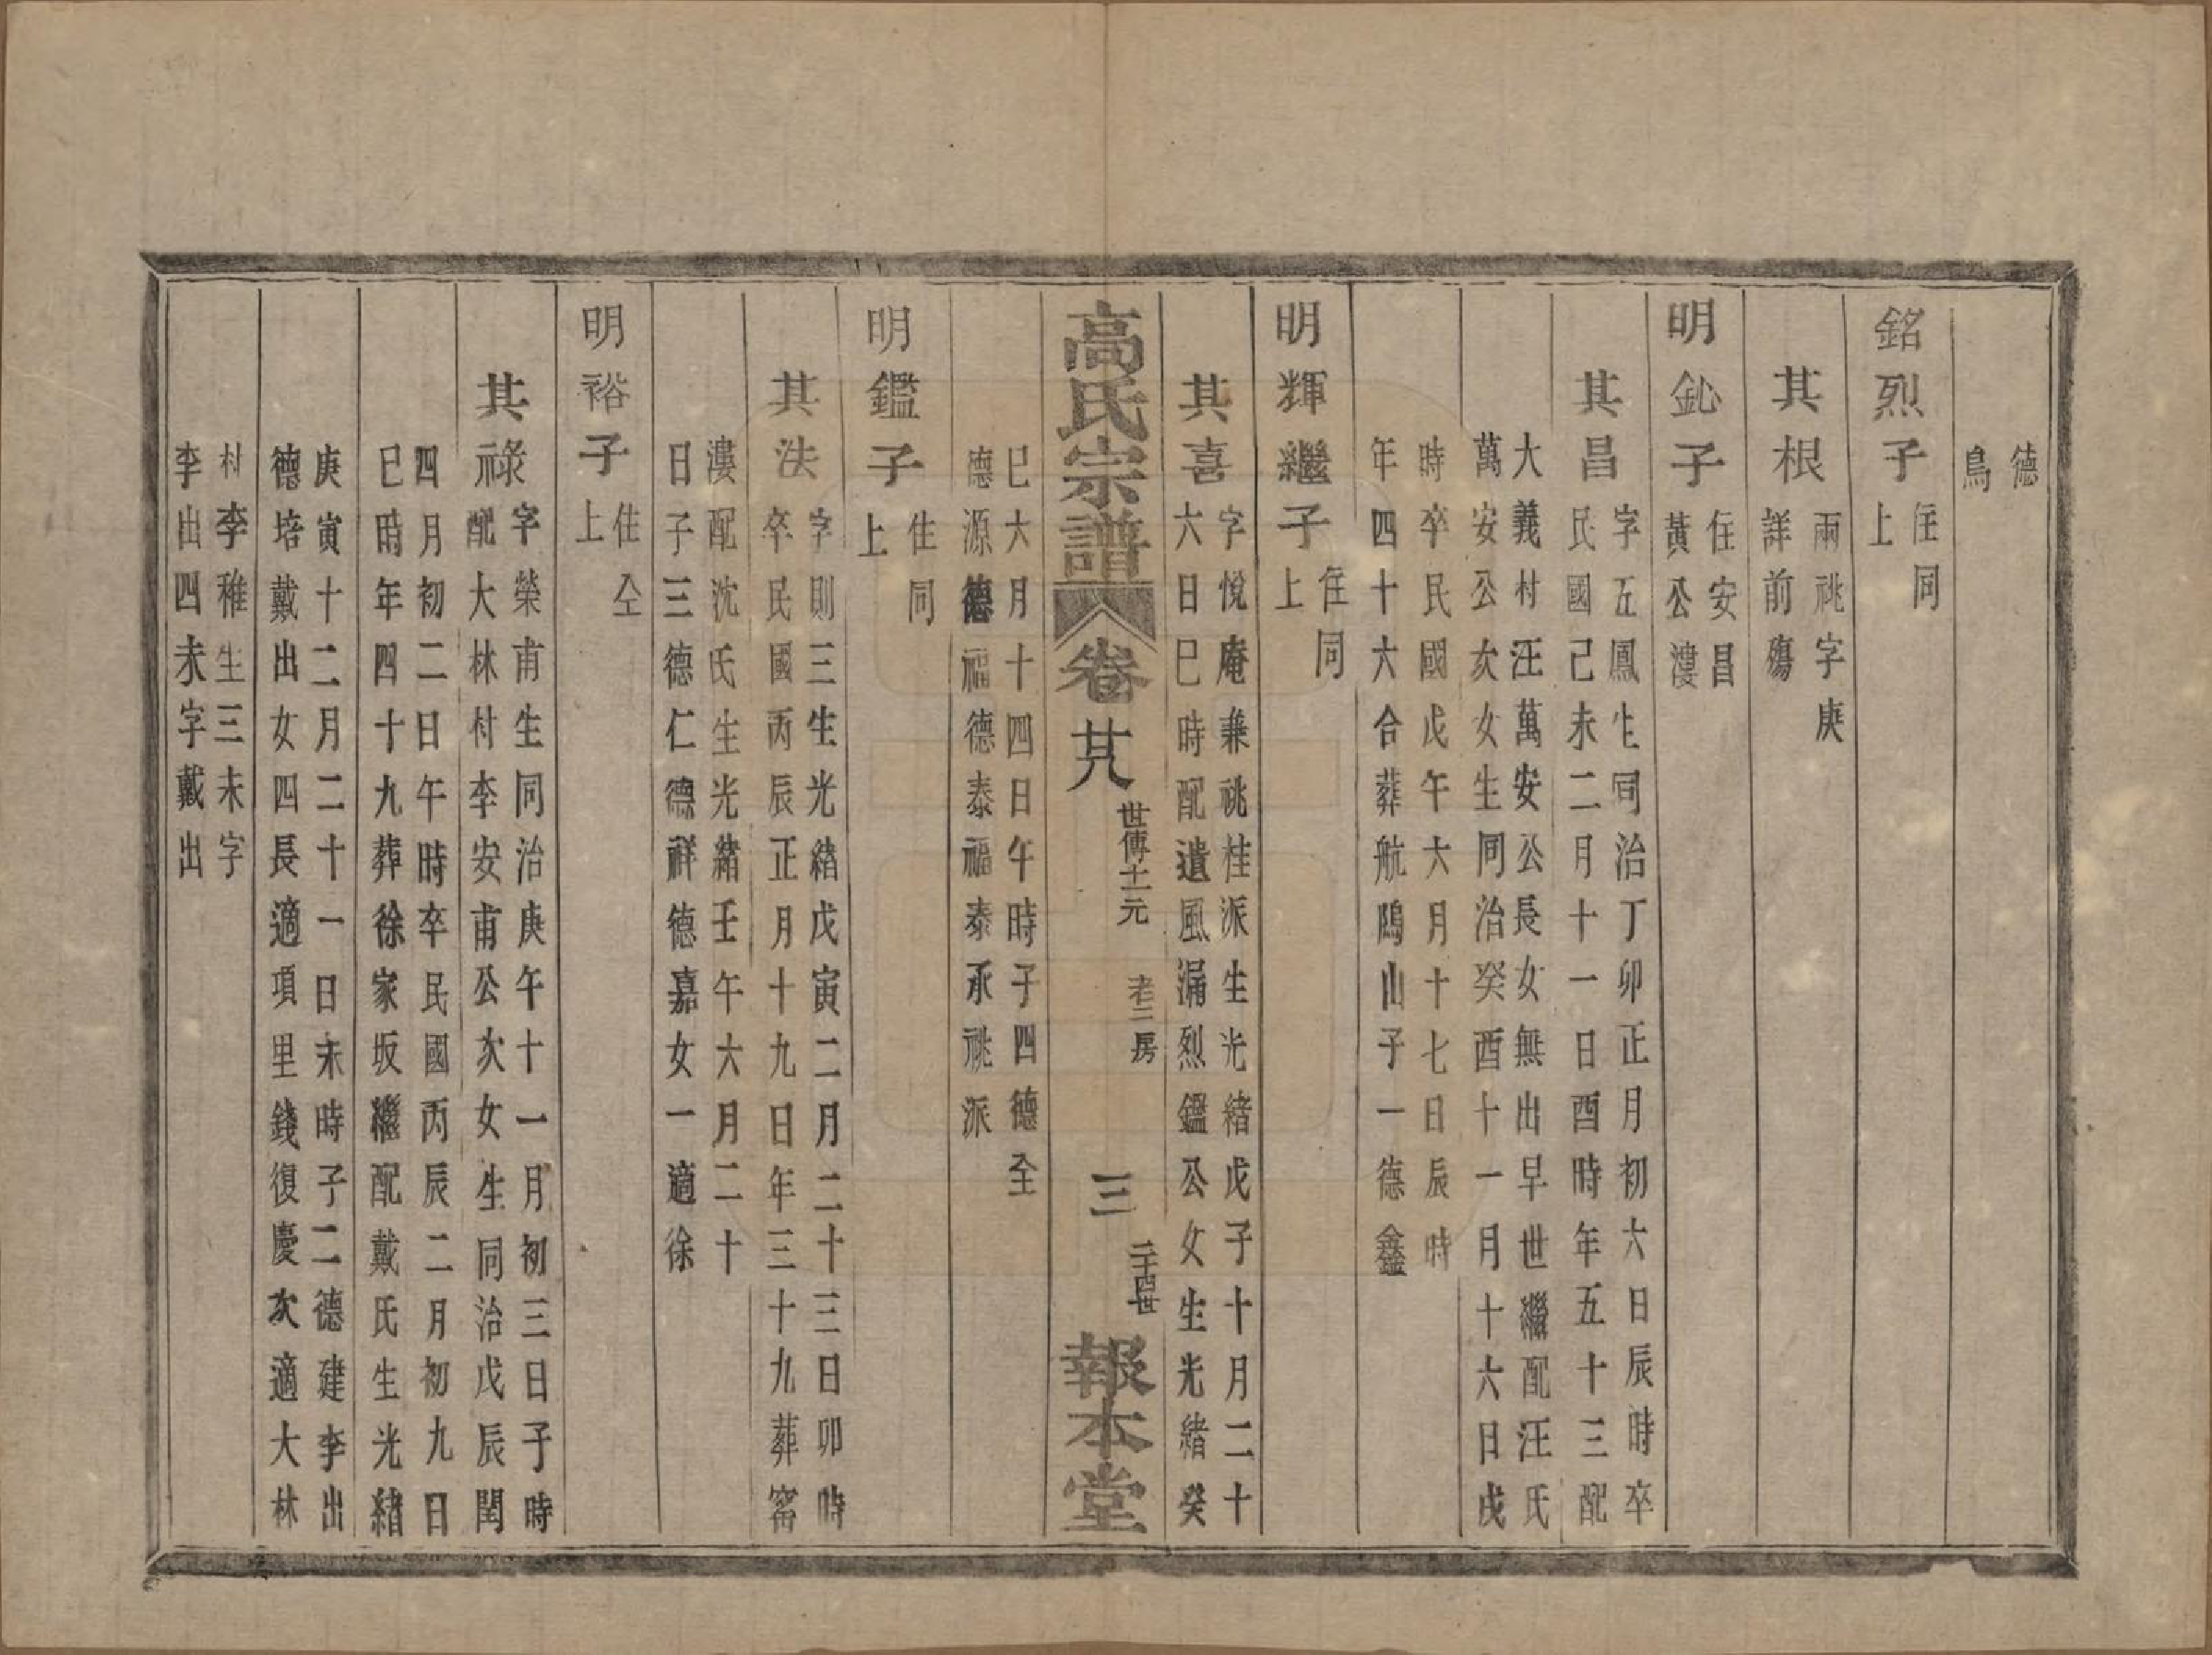 德
鳥
銘烈子 住同
上
其根 兩祧字庚
詳前殤
明鈊子 住安昌
黃公漊
其昌 字五鳳生同治丁卯正月初六日辰時卒
民國己未二月十一日酉時年五十三配
大義村汪萬安公長女無出早世繼配汪氏
萬安公次女生同治癸酉十一月十六日戌
時卒民國戊午六月十七日辰時
年四十六合葬航鴎山子一德鑫
明輝繼子 住同
上
其喜 字悅庵兼祧桂派生光緒戊子十月二十
六日巳時配遺風漏烈鑑公女生光緒癸
高氏宗譜 卷廿八 世傳十二元 老二房 三 二十四世 報本堂
巳六月十四日午時子四德全
德源德福德泰福泰承祧派
明鑑子 住同
上
其法 字則三生光緒戊寅二月二十三日卯時
卒民國丙辰正月十九日年三十九葬窰
漊配沈氏生光緒壬午六月二十
日子三德仁德祥德嘉女一適徐
明裕子 住仝
上
其祿 字榮甫生同治庚午十一月初三日子時
配大林村李安甫公次女生同治戊辰閏
四月初二日午時卒民國丙辰二月初九日
巳時年四十九葬徐家坂繼配戴氏生光緒
庚寅十二月二十一日未時子二德建李出
德培戴出女四長適項里錢復慶次適大林
村李稚生三未字
李出四未字戴出